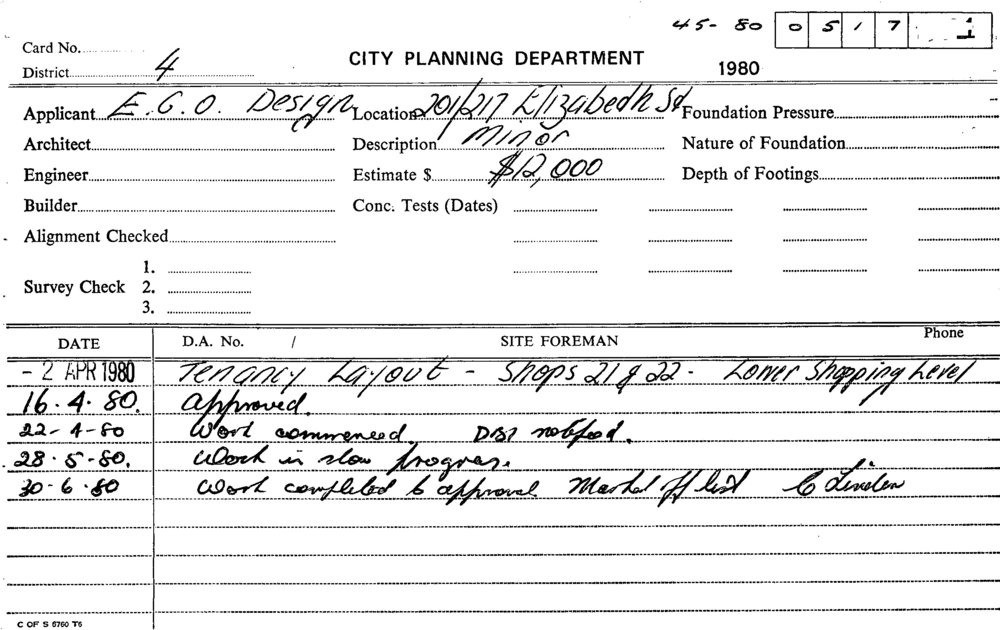 45-80 0517 1
Card No.
District 4
CITY PLANNING DEPARTMENT
1980
Applicant E.G.O. Design Location 201/217 Elizabeth St Foundation Pressure
Architect Description Minor Nature of Foundation
Engineer Estimate $ $12,000 Depth of Footings
Builder Conc. Tests (Dates)
Alignment Checked
1.
Survey Check 2.
3.
DATE D.A. No. / SITE FOREMAN Phone
- 2 APR 1980 Tenancy Layout - Shops 21 & 22 - Lower Shopping Level
16.4.80. Approved.
22-4-80 Work commenced
28.5-80. Work in slow progress.
30.6.80 Work completed to approval Marked off list
C OF S 6760 T6